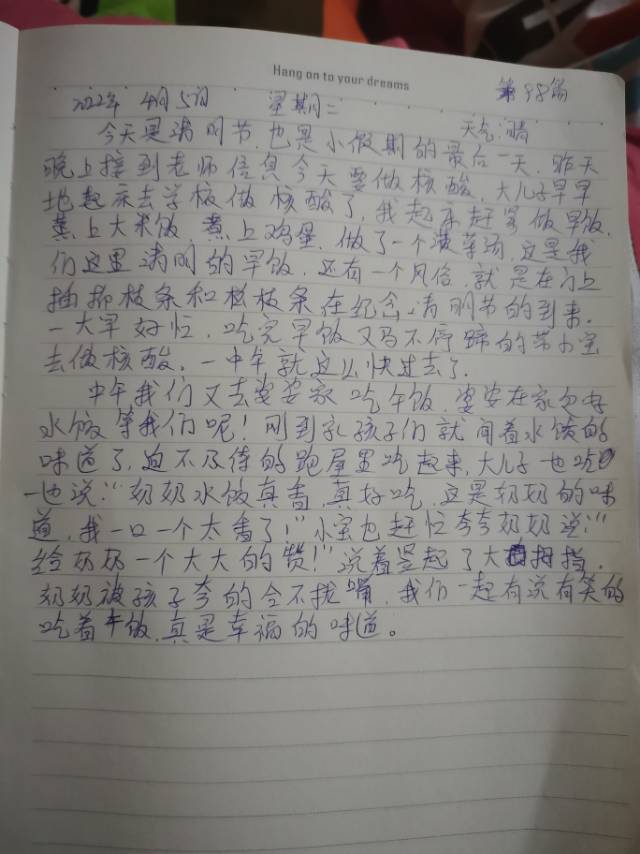 Hang on to your dreams
第98篇
2022年 4月5日 星期二
天气:晴
今天是清明节,也是小假期的最后一天,昨天
晚上接到老师信息今天要做核酸,大儿子早早
地起床去学校做核酸了,我起床赶紧做早饭,
蒸上大米饭,煮上鸡蛋,做了一个菠菜汤,这是我
们这里清明的早饭,还有一个风俗,就是在门上
插柳枝条和核枝条在纪念清明节的到来。
一大早好忙,吃完早饭又马不停蹄的带小宝
去做核酸。一中午就这么快过去了。
中午我们又去婆婆家吃午饭,婆婆在家包好
水饺等我们呢!刚到家孩子们就闻着水饺的
味道了,迫不及待的跑屋里吃起来,大儿子也吃
也说:“奶奶水饺真香,真好吃,这是奶奶的味
道,我一口一个太香了!”小宝也赶忙夸夸奶奶说:“
给奶奶一个大大的赞!”说着竖起了大拇指,
奶奶被孩子夸的合不拢嘴,我们一起有说有笑的
吃着午饭,真是幸福的味道。